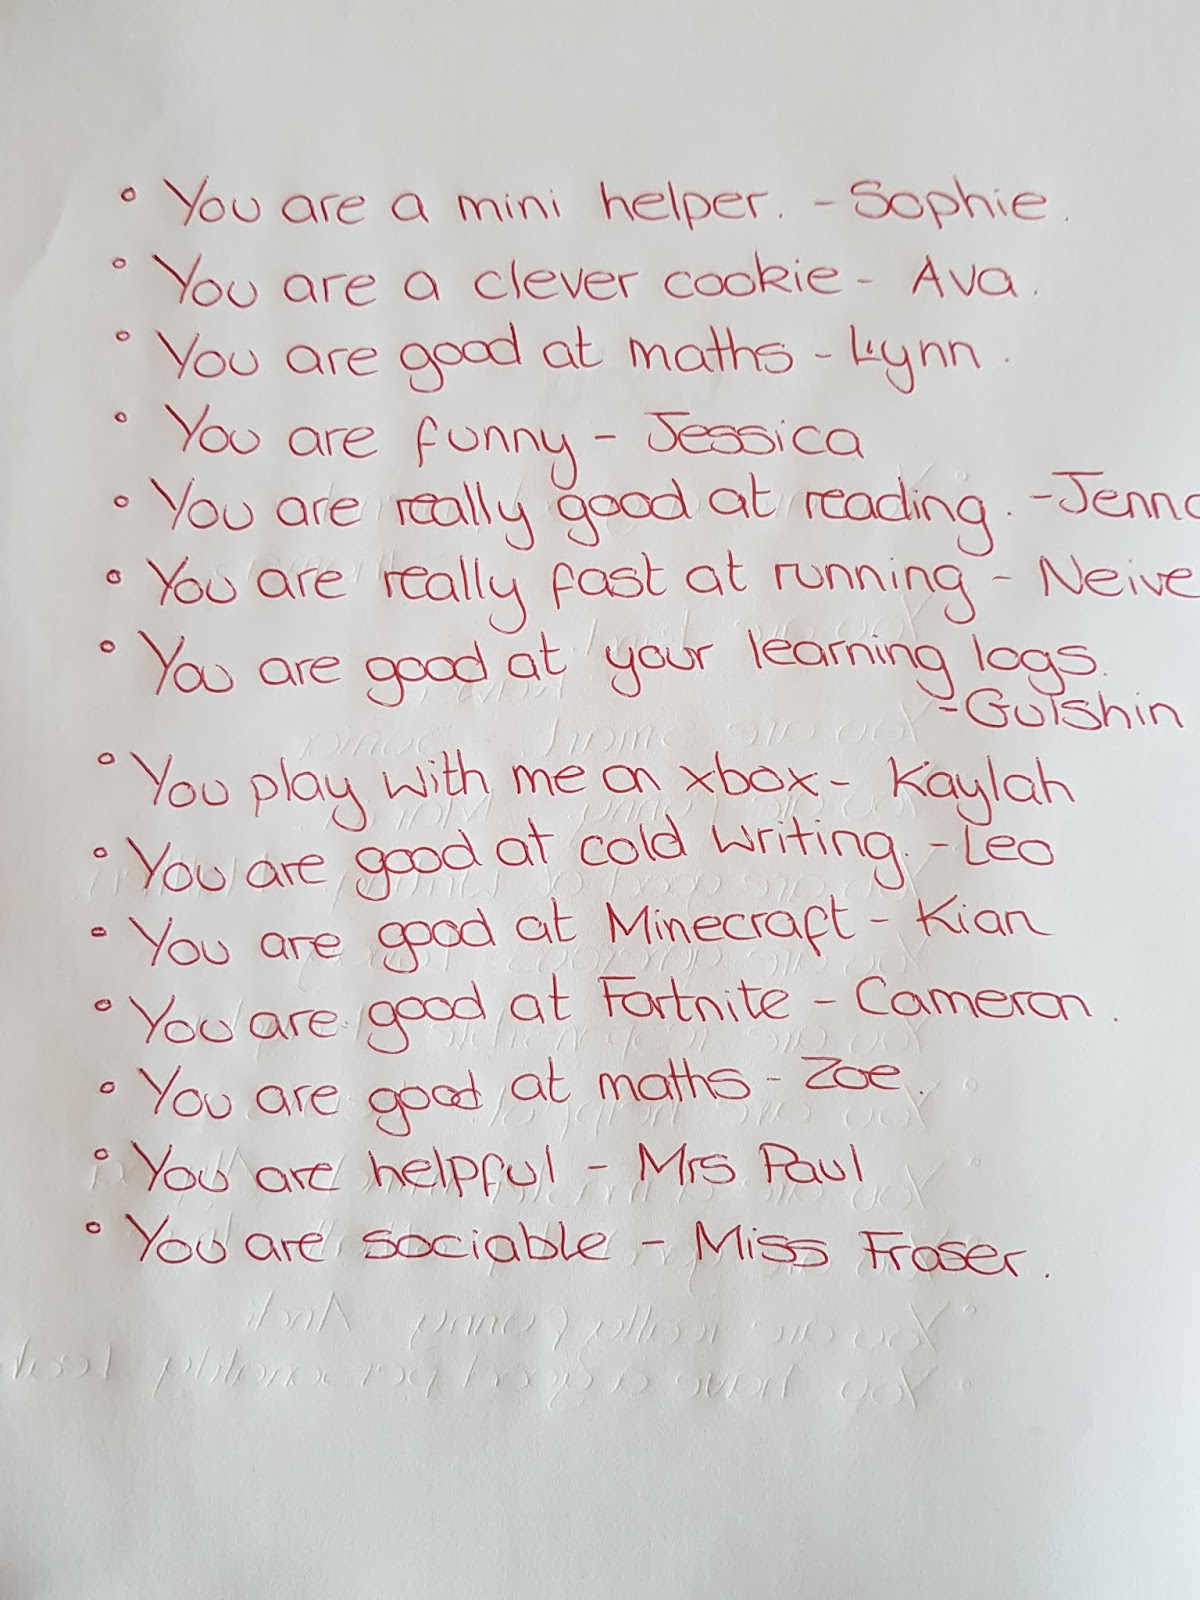 • You are a mini helper. - Sophie.
• You are a clever cookie - Ava.
• You are good at maths - Lynn.
• You are funny - Jessica
• You are really good at reading. - Jenna
• You are really fast at running - Neive
• You are good at your learning logs.
- Gulshin
• You play with me on xbox - Kaylah
• You are good at cold writing. - Leo
• You are good at Minecraft - Kian
• You are good at Fortnite - Cameron.
• You are good at maths - Zoe.
• You are helpful - Mrs Paul
• You are sociable - Miss Fraser.